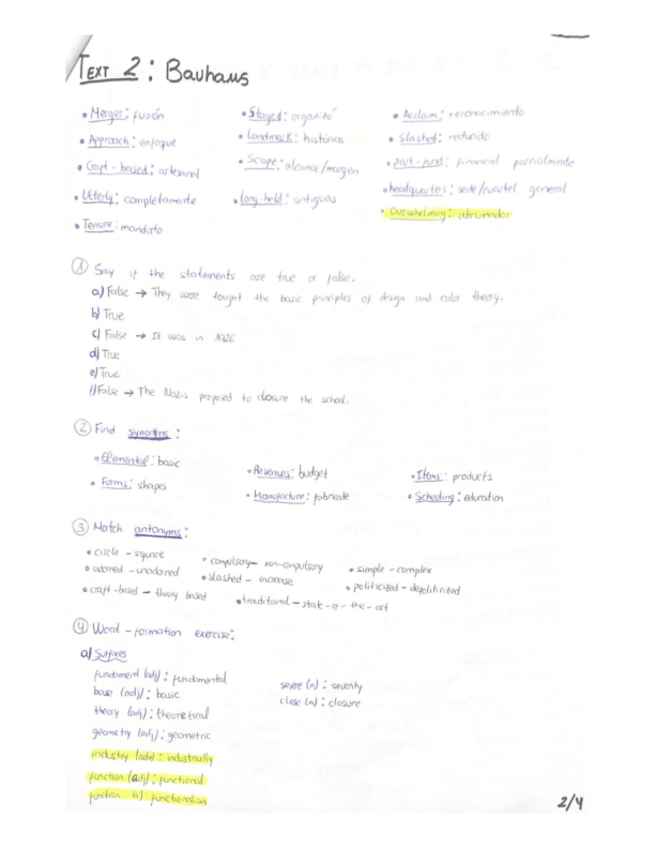 TEXT 2: Bauhaus
• Merger: fusión
• Approach: enfoque
• Craft-based: artesanal
• Utterly: completamente
• Tenure: mandato
• Staged: organitó
• Landmark: histórica
• Scope: alcance/margen
• long-held: antiguas
• Acclaim: reconocimiento
• Slashed: reducido
• part-fund: financial parcialmente
• headquarters: sede/cuartel general
• Overwhelming: abrumador
① Say if the statements are true or false.
a) False → They were taught the basic principles of design and color theory.
b) True
c) False → It was in 1926
d) True
e) True
f) False → The Nazis proposed to closure the school.
② Find synonyms:
• Elemental: basic
• Forms: shapes
• Revenues: budget
• Manufacture: fabricate
• Items: products
• Schooling: education
③ Match antonyms:
• circle - square
• adorned - unadorned
• craft-based - theory based
• compulsory - non-compulsory
• slashed - increase
• traditional - state-of-the-art
• simple - complex
• politicized - depoliticized
④ Word-formation exercise:
a) Suffixes
fundament (adj): fundamental
base (adj): basic
theory (adj): theoretical
geometry (adj): geometric
industry (adv): industrially
function (adj): functional
function (n): functionalism
severe (n): severity
close (n): closure
2/4